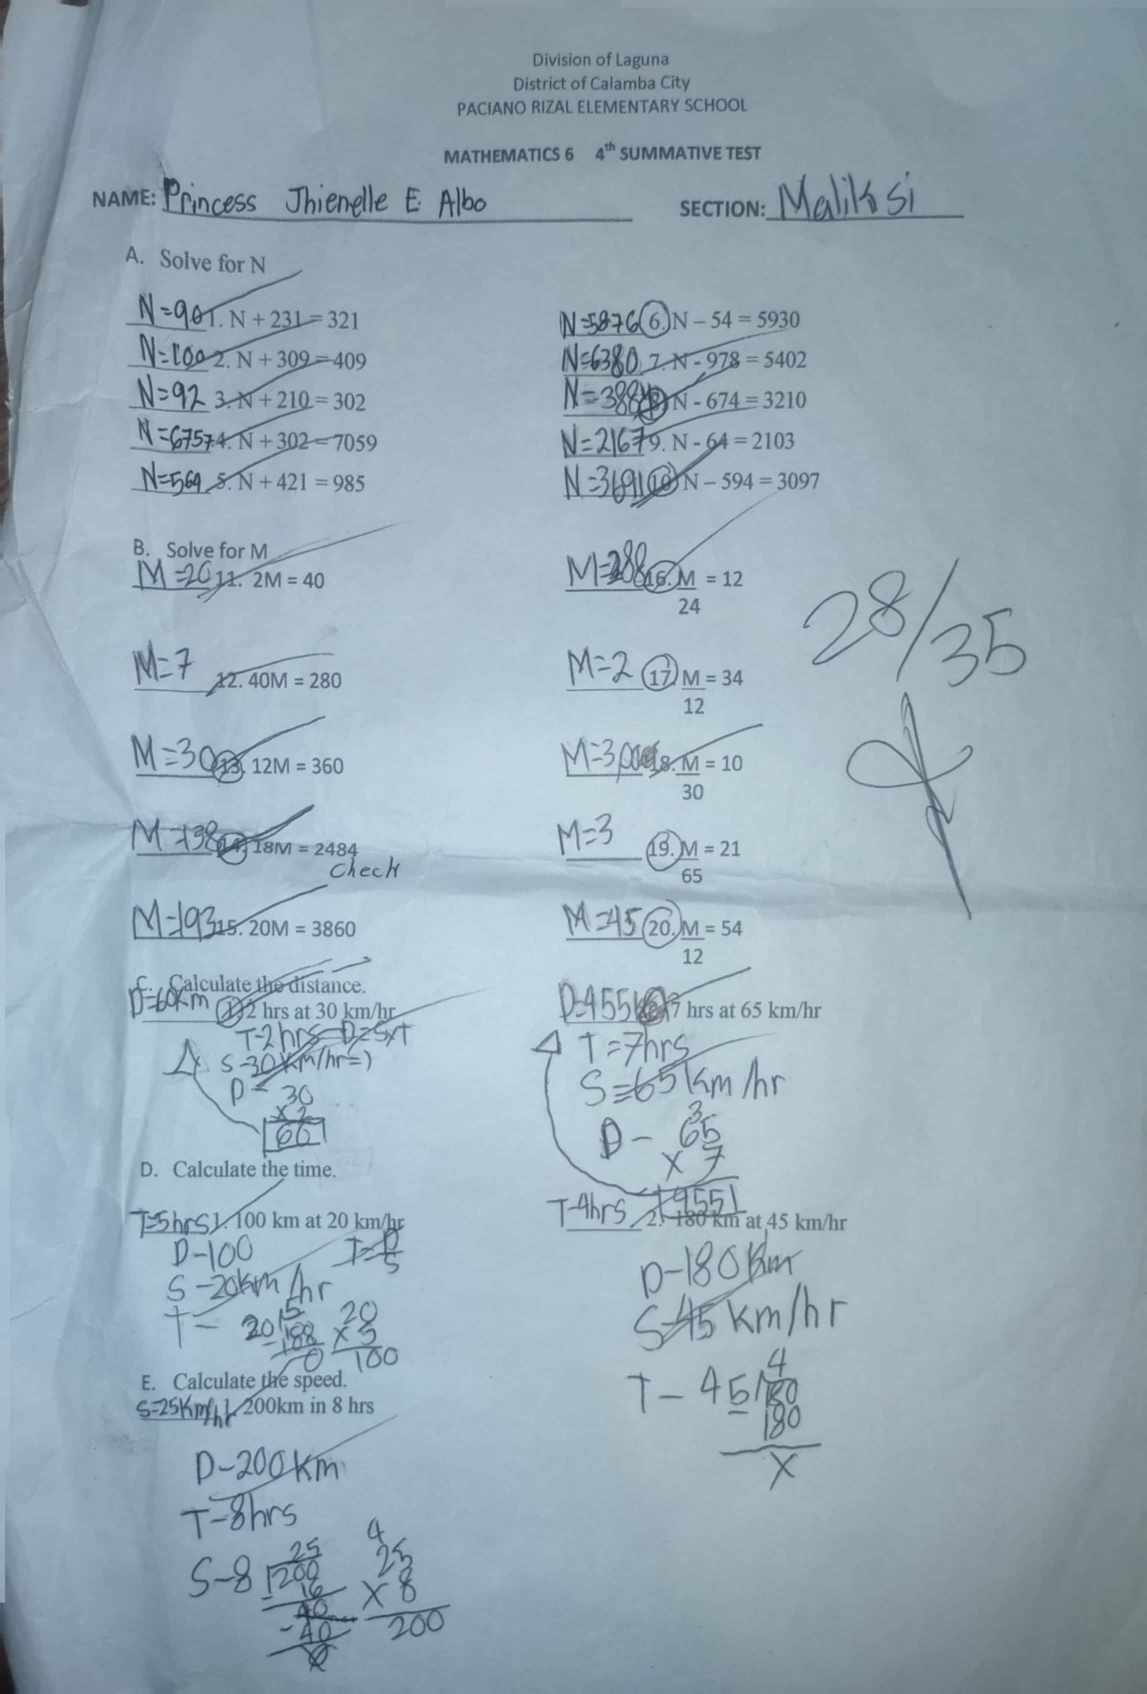 Division of Laguna
District of Calamba City
PACIANO RIZAL ELEMENTARY SCHOOL
MATHEMATICS 6 4th SUMMATIVE TEST
NAME: Princess Jhienelle E. Albo SECTION: Maliksi
A. Solve for N
N=90 1. N + 231 = 321
N=100 2. N + 309 = 409
N=92 3. N + 210 = 302
N=6757 4. N + 302 = 7059
N=564 5. N + 421 = 985
N=5876 6. N – 54 = 5930
N=6380 7. N - 978 = 5402
N=3884 N - 674 = 3210
N=2167 9. N - 64 = 2103
N=3691 10. N – 594 = 3097
B. Solve for M
M=20 11. 2M = 40
M=7 12. 40M = 280
M=30 13. 12M = 360
M=138 14. 18M = 2484
check
M=193 15. 20M = 3860
M=288 16. M = 12
24
M=2 17. M = 34
12
M=300 18. M = 10
30
M=3 19. M = 21
65
M=45 20. M = 54
12
28/35
C. Calculate the distance.
D=60km 1. 2 hrs at 30 km/hr
T-2hrs D=SxT
S-30 km/hr
D- 30
x 2
60
D=455k 7 hrs at 65 km/hr
T=7hrs
S=65km/hr
3
D- 65
x 7
455
D. Calculate the time.
T=5hrs 1. 100 km at 20 km/hr
D-100 T=D
S
S-20km/hr
5 20
T- 20 100 x 5
0 100
T-4hrs 2. 180 km at 45 km/hr
D-180km
S-45 km/hr
4
T- 45 180
- 180
x
E. Calculate the speed.
S=25km/hr 1. 200km in 8 hrs
D-200km
T-8hrs
25 4
S-8 200 25
- 16 x 8
40 200
- 40